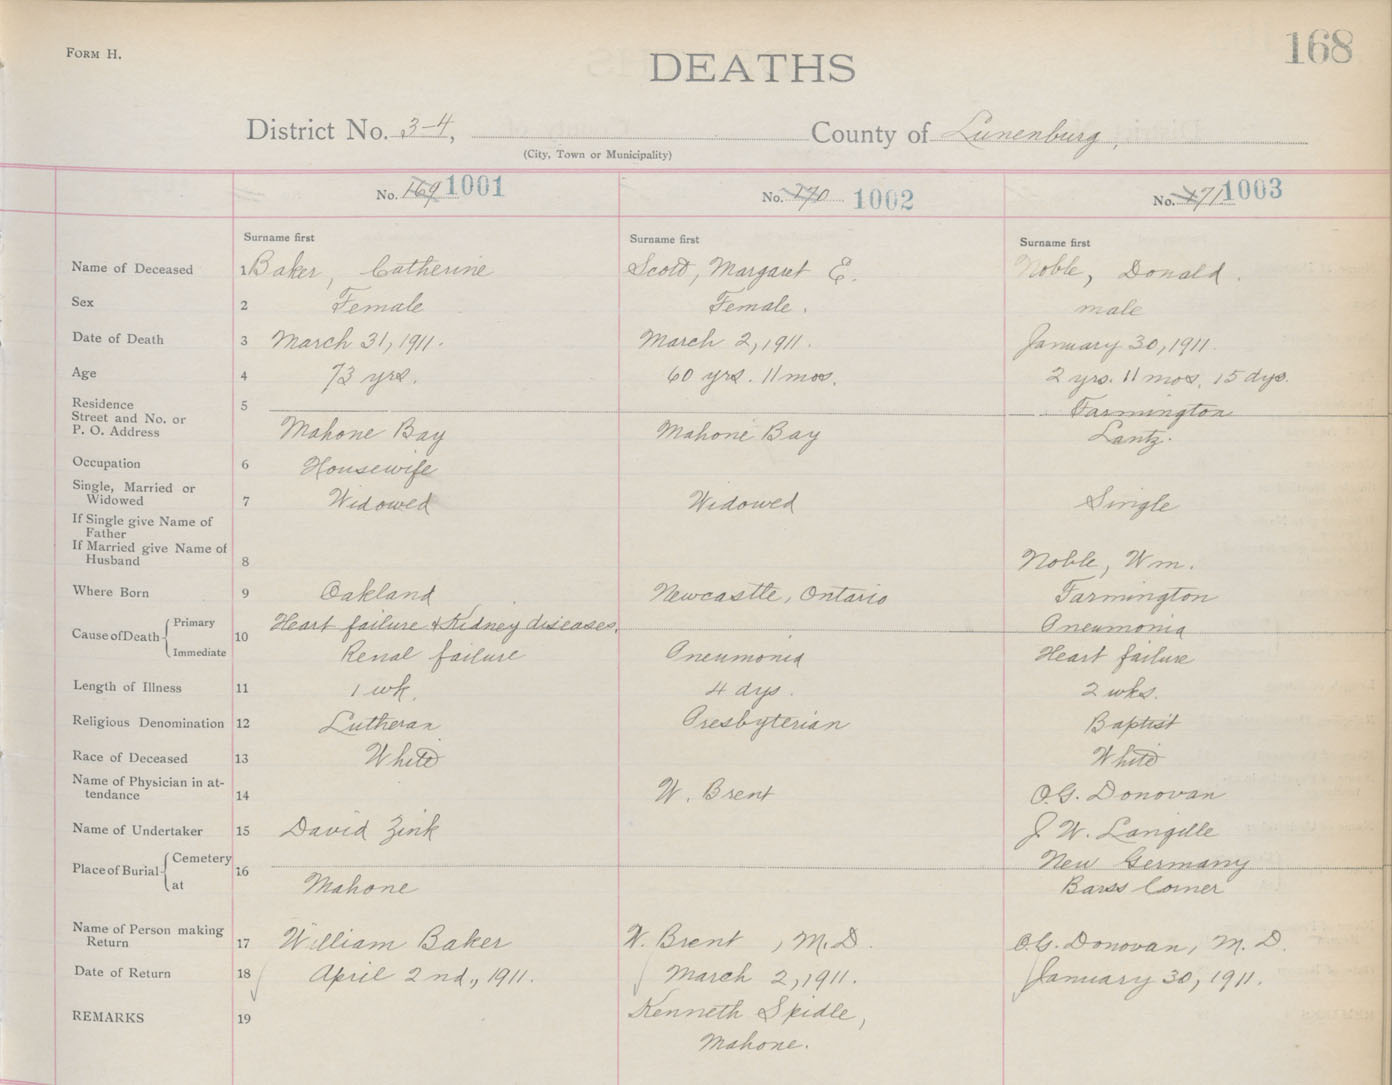 FORM H.
168
DEATHS
District No. 3-4, County of Lunenburg,
(City, Town or Municipality)
No. 169 1001 No. 170 1002 No. 171 1003
Surname first Surname first Surname first
Name of Deceased 1 Baker, Catherine Scott, Margaret E. Noble, Donald.
Sex 2 Female Female. male
Date of Death 3 March 31, 1911. March 2, 1911. January 30, 1911.
Age 4 73 yrs. 60 yrs. 11 mos. 2 yrs. 11 mos. 15 dys.
Residence 5 Farmington
Street and No. or
P. O. Address Mahone Bay Mahone Bay Lantz.
Occupation 6 Housewife
Single, Married or
Widowed 7 Widowed Widowed Single
If Single give Name of
Father
If Married give Name of
Husband 8 Noble, Wm.
Where Born 9 Oakland Newcastle, Ontario Farmington
Cause of Death 10
Primary Heart failure & Kidney diseases. Pneumonia
Immediate Renal failure Pneumonia Heart failure
Length of Illness 11 1 wk. 4 dys. 2 wks.
Religious Denomination 12 Lutheran Presbyterian Baptist
Race of Deceased 13 White White
Name of Physician in at-
tendance 14 W. Brent O.G. Donovan
Name of Undertaker 15 David Zink J. W. Langille
Place of Burial 16
Cemetery New Germany
at Mahone Barss Corner
Name of Person making
Return 17 William Baker W. Brent, M.D. O.G. Donovan, M.D.
Date of Return 18 April 2nd., 1911. March 2, 1911. January 30, 1911.
REMARKS 19 Kenneth Spidle,
Mahone.